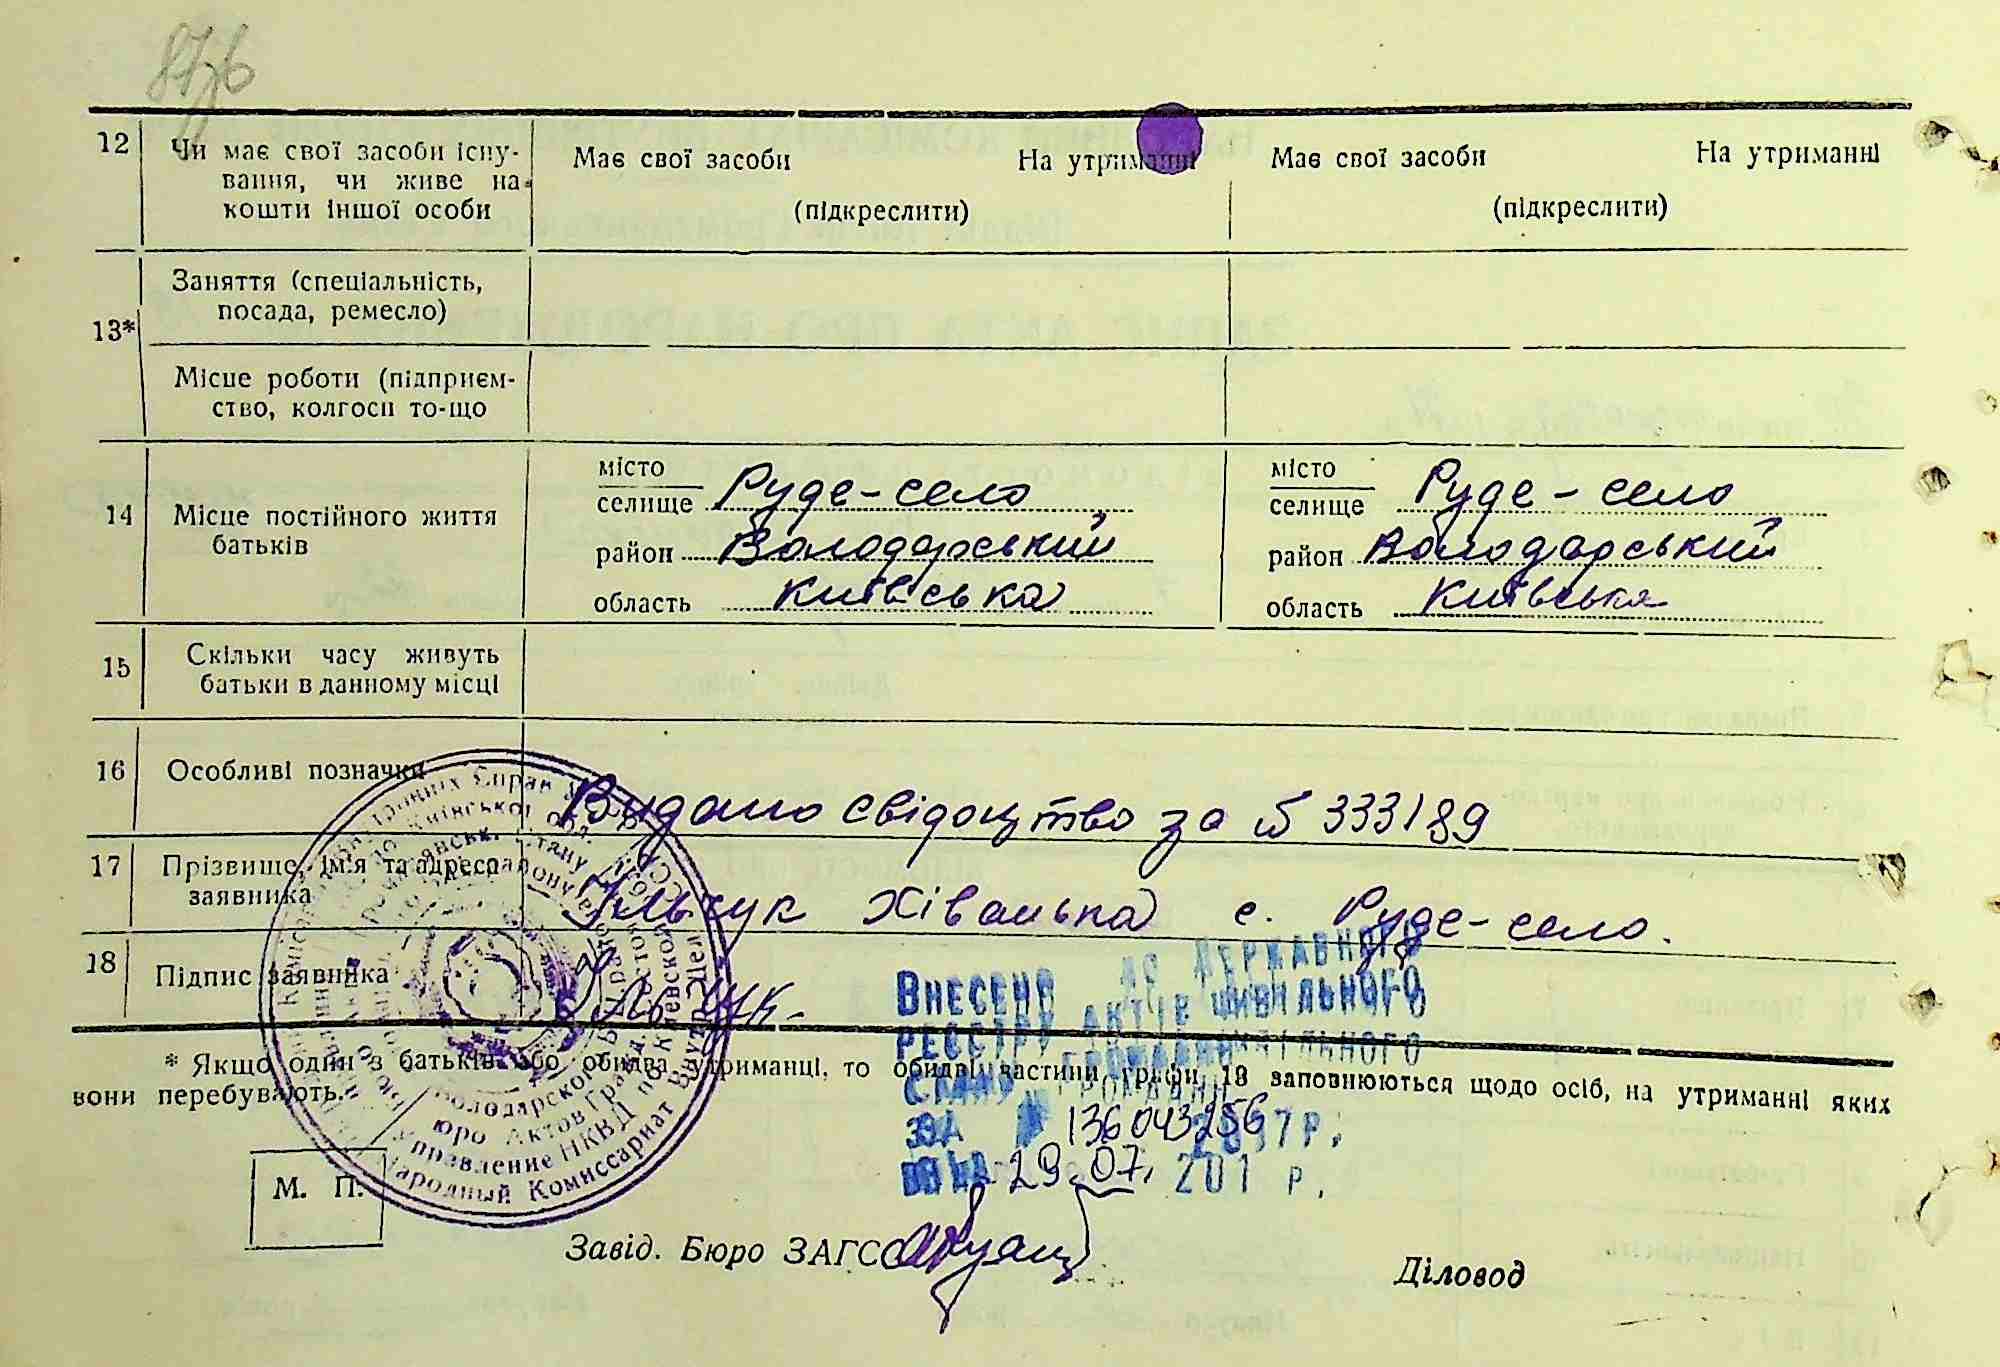 12 Чи має свої засоби існу-
вання, чи живе на
кошти іншої особи
Має свої засоби На утриманні
(підкреслити)
Має свої засоби На утриманні
(підкреслити)
13*
Заняття (спеціальність,
посада, ремесло)
Місце роботи (підприєм-
ство, колгосп то-що
14 Місце постійного життя
батьків
місто
селище Руде-село
район Володарський
область Київська
місто
селище Руде-село
район Володарський
область Київська
15 Скільки часу живуть
батьки в данному місці
16 Особливі позначки
Видано свідоцтво за № 333189
17 Прізвище, ім'я та адреса
заявника
Ільчук с. Руде-село.
18 Підпис заявника
Ільчук.
ВНЕСЕНО ДО ДЕРЖАВНОГО
РЕЄСТРУ АКТІВ ЦИВІЛЬНОГО
СТАНУ ГРОМАДЯН
ЗА № 136043256
ВІД 29.07. 201 р.
* Якщо один з батьків або обидва утриманці, то обидві частини графи 13 заповнюються щодо осіб, на утриманні яких
вони перебувають.
Народный Комиссариат Внутр
Управление НКВД по Киевской обл.
Бюро Актов Гражд.
Володарского
М. П.
Завід. Бюро ЗАГС
Діловод